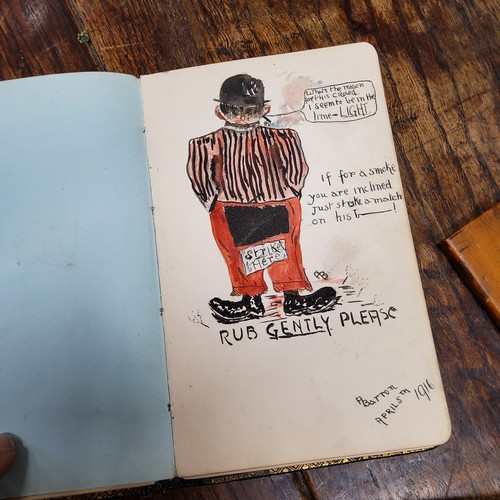 What's the reason
for this crowd
I seem to be in the
lime-LIGHT
If for a smoke
you are inclined
Just stroke a match
on his t——!
Strike
Here
AB
RUB GENTLY PLEASE
ABarron
APRIL 5TH 1916